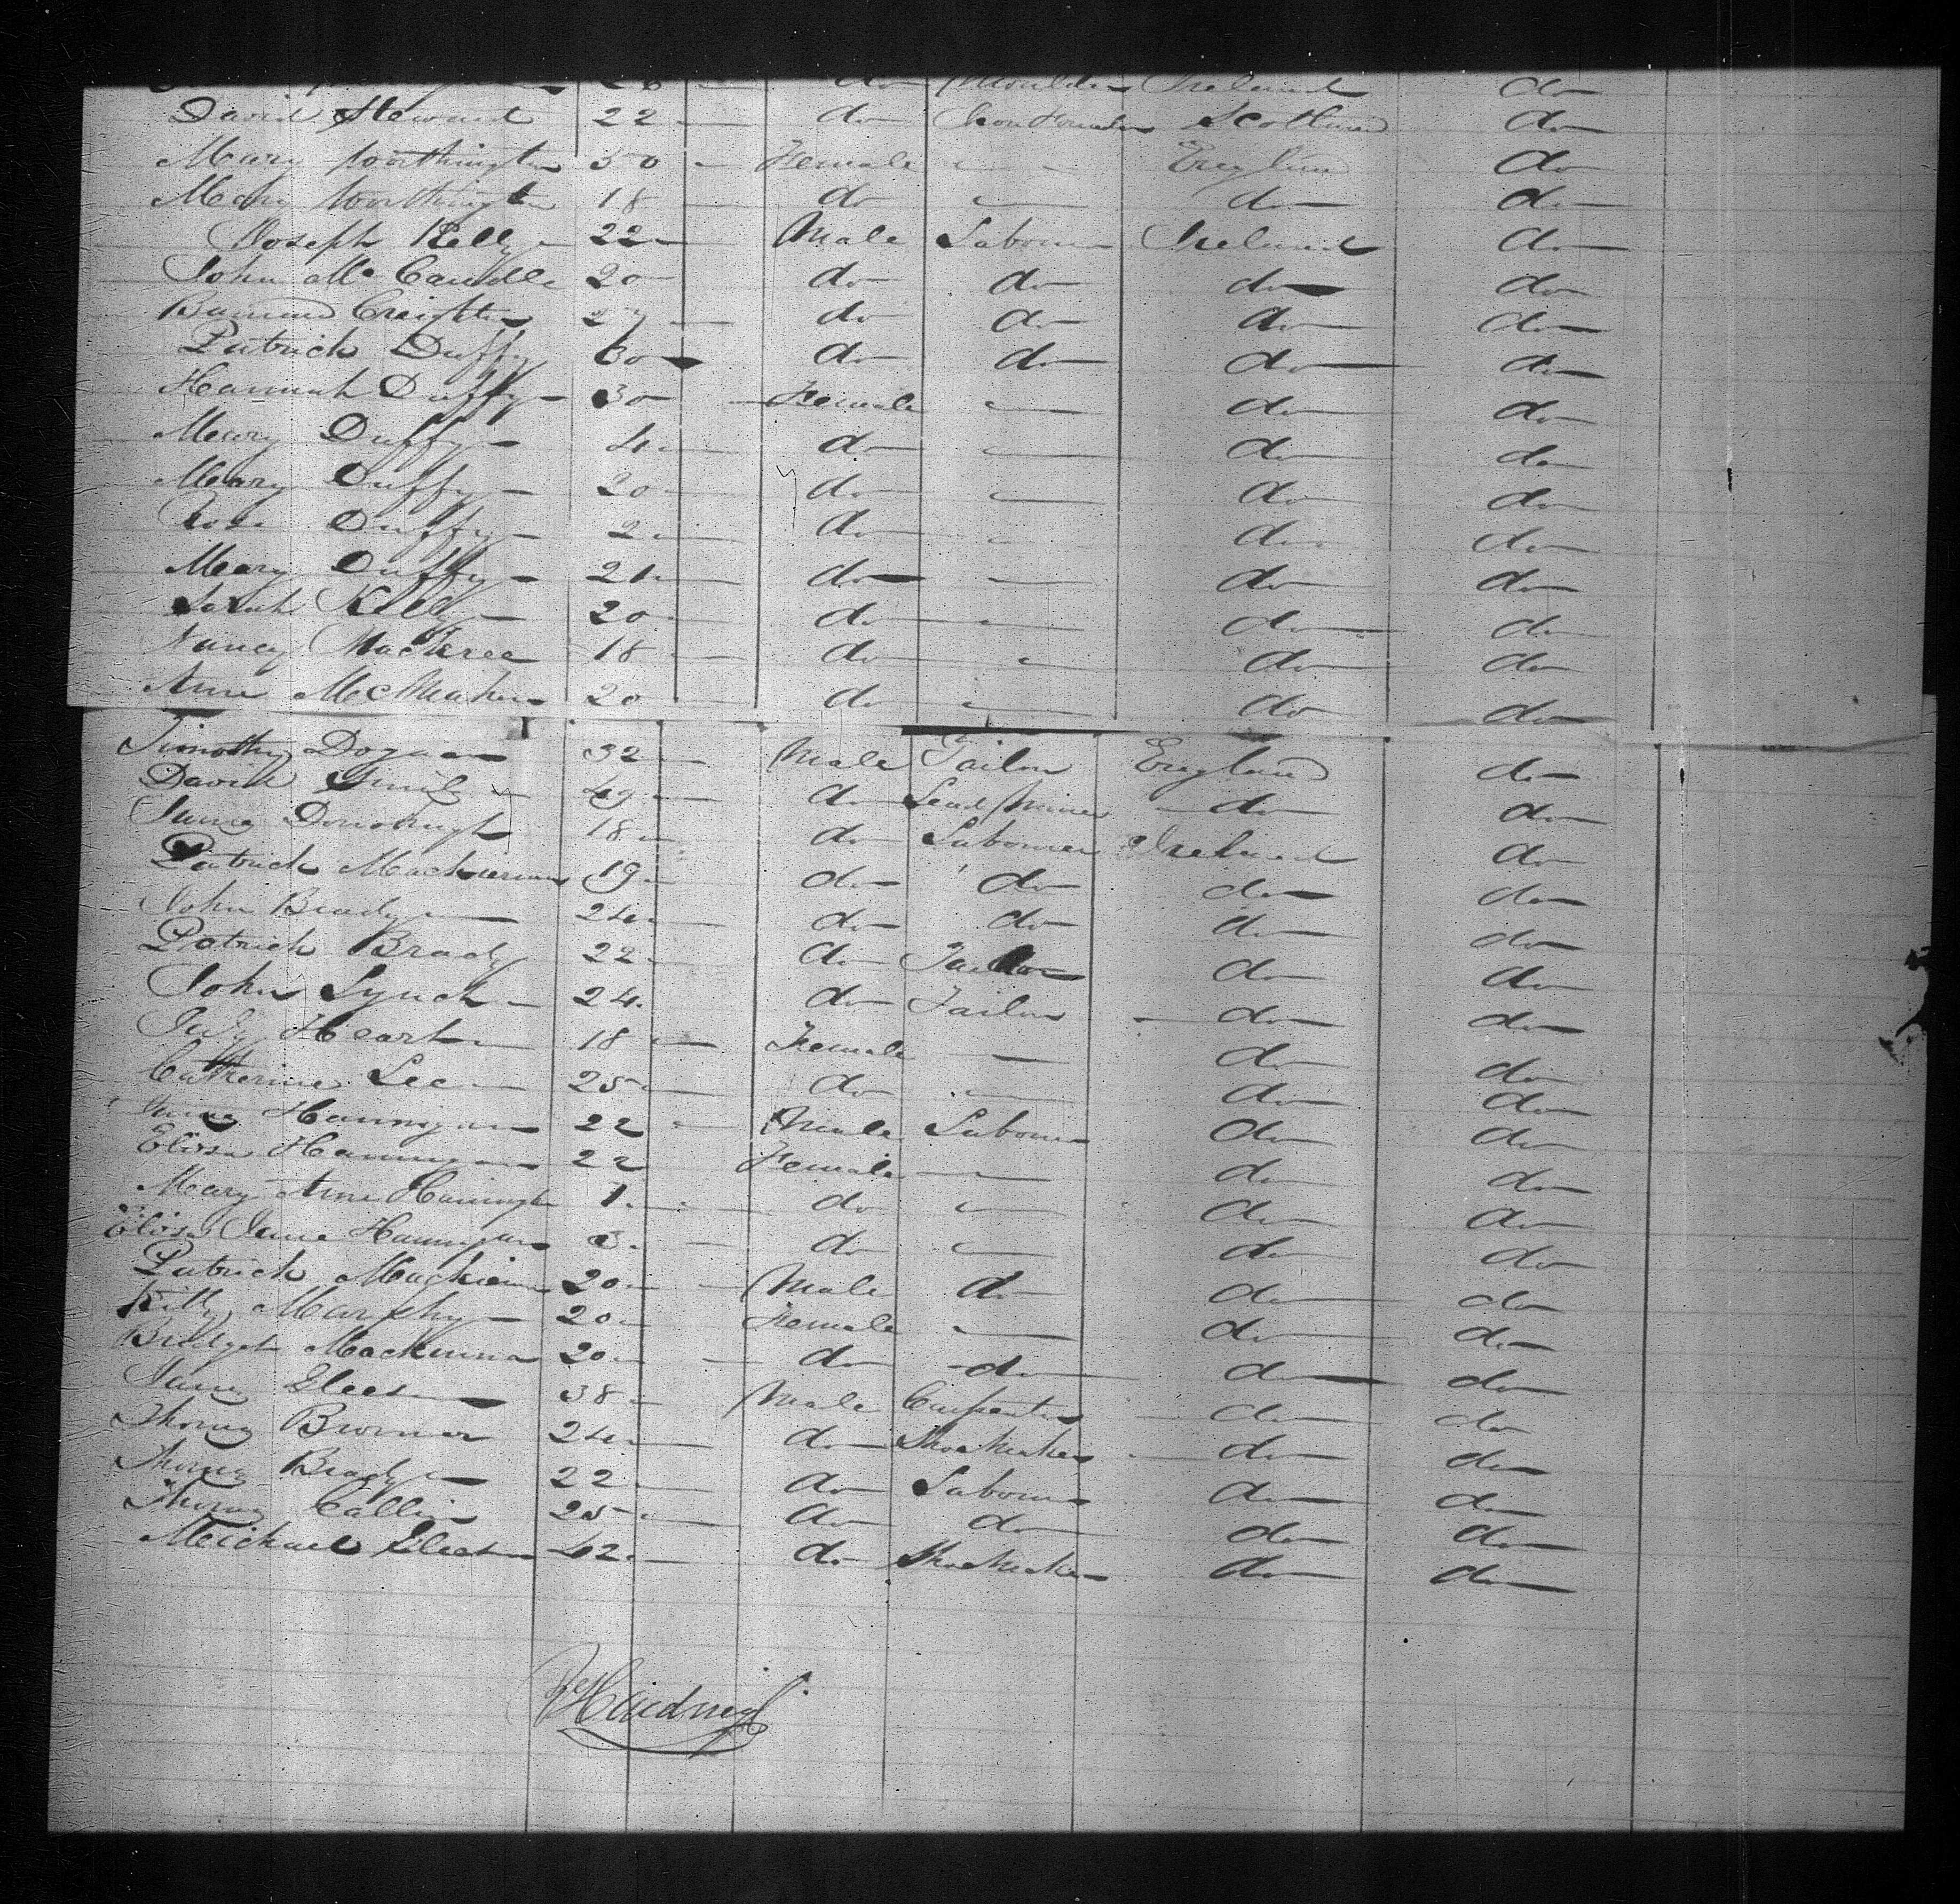 26 do Moulder Ireland do
David Steward 22 do Iron Founder Scotland do
Mary Worthington 50 Female England do
Mary Worthington 18 do do do
Joseph Kelly 22 Male Labourer Ireland do
John Mc 20 do do do do
Creighton 27 do do do do
Patrick Duffy 30 do do do do
Hannah Duffy 30 Female do do
Mary Duffy 4 do do do
Mary Duffy 20 do do do
Rose Duffy 2 do do do
Mary Duffy 21 do do do
Sarah Kelly 20 do do do
Nancy 18 do do do
Anne McMahon 20 do do do
Timothy 32 Male Tailor England do
David 49 do Lead Miner do do
18 do Labourer Ireland do
Patrick 19 do do do do
John Brady 24 do do do do
Patrick Brady 22 do Tailor do do
John Lynch 24 do Tailor do do
July Heart 18 Female do do
Catherine Lee 25 do do do
Hannigan 22 Male Labourer do do
Elisa Hannigan 22 Female do do
Mary Anne 1 do do do
Elisa Jane Hannigan 3 do do do
Patrick 20 Male do do do
Kitty Murphy 20 Female do do
Bridget Mackenna 20 do do do do
Gleeson 38 Male Carpenter do do
Thomas 24 do Shoe Maker do do
Thomas Brady 22 do Labourer do do
Thomas 25 do do do do
Meichael Gleeson 42 do Shoe Maker do do